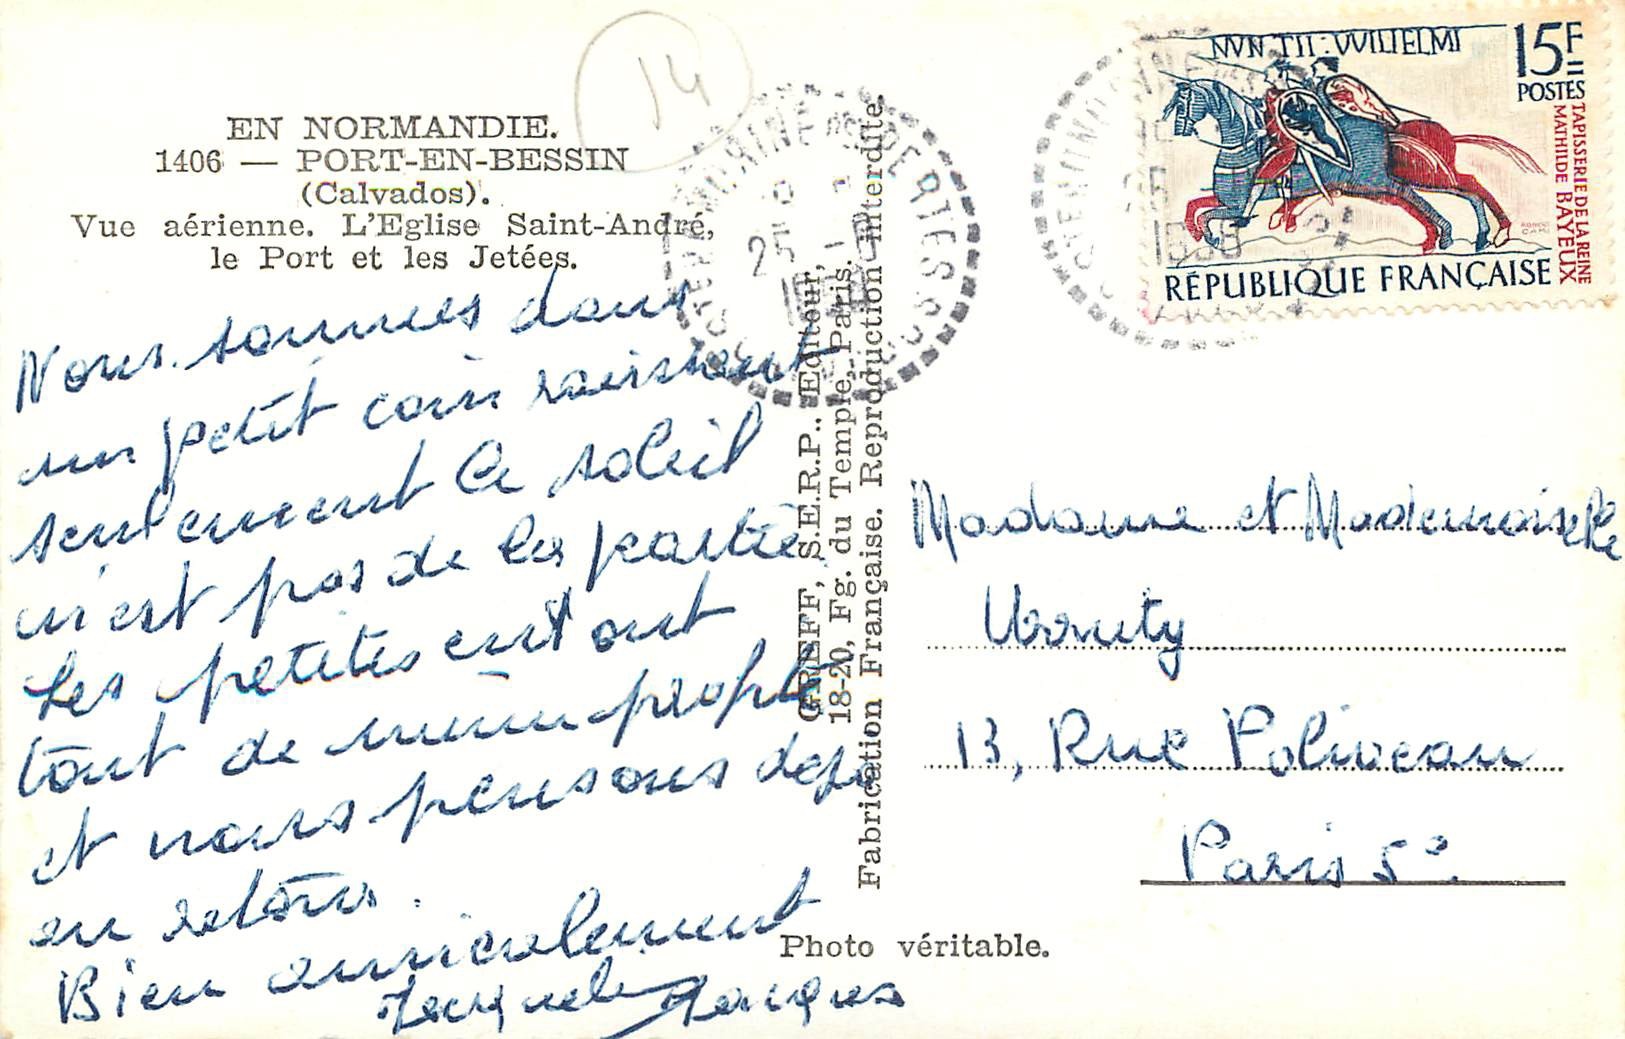 EN NORMANDIE.
1406 — PORT-EN-BESSIN
(Calvados).
Vue aérienne. L'Eglise Saint-André,
le Port et les Jetées.
14
Nous sommes dans
un petit coin ravissant
seulement le soleil
n'est pas de la partie
Les petites en ont
tout de même profité
et nous pensons déjà
au retour.
Bien amicalement
Jacqueline Jacques
GREFF, S.E.R.P., Editeur,
18-20, Fg. du Temple, Paris.
Fabrication Française. Reproduction interdite.
Photo véritable.
NVN TII : VVILIELMI
15F
POSTES
TAPISSERIE DE LA REINE
MATHILDE BAYEUX
RÉPUBLIQUE FRANÇAISE
25
Madame et Mademoiselle
13, Rue Poliveau
Paris 5e.